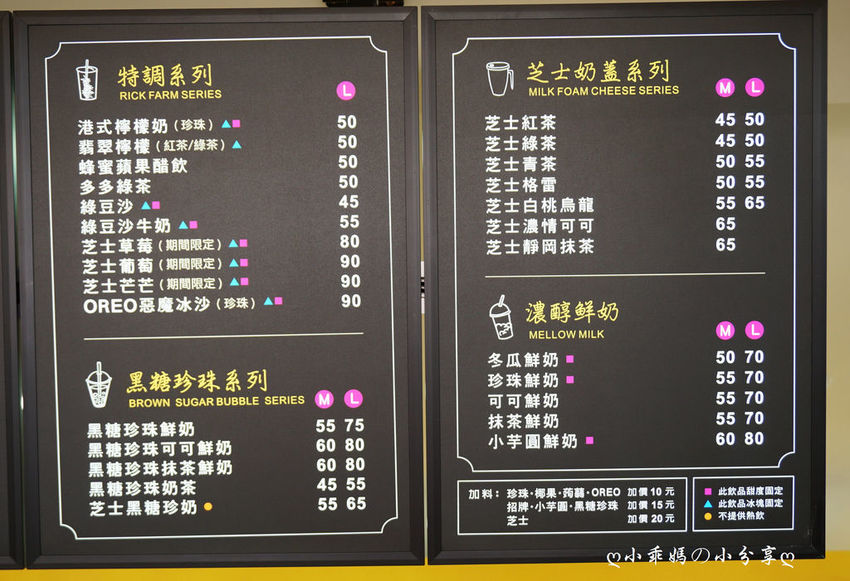 特調系列
RICK FARM SERIES L
港式檸檬奶（珍珠）▲■ 50
翡翠檸檬（紅茶/綠茶）▲ 50
蜂蜜蘋果醋飲 50
多多綠茶 50
綠豆沙▲■ 45
綠豆沙牛奶▲■ 55
芝士草莓（期間限定）▲■ 80
芝士葡萄（期間限定）▲■ 90
芝士芒芒（期間限定）▲■ 90
OREO惡魔冰沙（珍珠）▲■ 90
黑糖珍珠系列
BROWN SUGAR BUBBLE SERIES M L
黑糖珍珠鮮奶 55 75
黑糖珍珠可可鮮奶 60 80
黑糖珍珠抹茶鮮奶 60 80
黑糖珍珠奶茶 45 55
芝士黑糖珍奶● 55 65
芝士奶蓋系列
MILK FOAM CHEESE SERIES M L
芝士紅茶 45 50
芝士綠茶 45 50
芝士青茶 50 55
芝士格雷 50 55
芝士白桃烏龍 55 65
芝士濃情可可 65
芝士靜岡抹茶 65
濃醇鮮奶
MELLOW MILK M L
冬瓜鮮奶■ 50 70
珍珠鮮奶■ 55 70
可可鮮奶 55 70
抹茶鮮奶 55 70
小芋圓鮮奶■ 60 80
加料：珍珠·椰果·蒟蒻·OREO 加價10元
招牌·小芋圓·黑糖珍珠 加價15元
芝士 加價20元
■ 此飲品甜度固定
▲ 此飲品冰塊固定
● 不提供熱飲
ღ小乖媽の小分享ღ